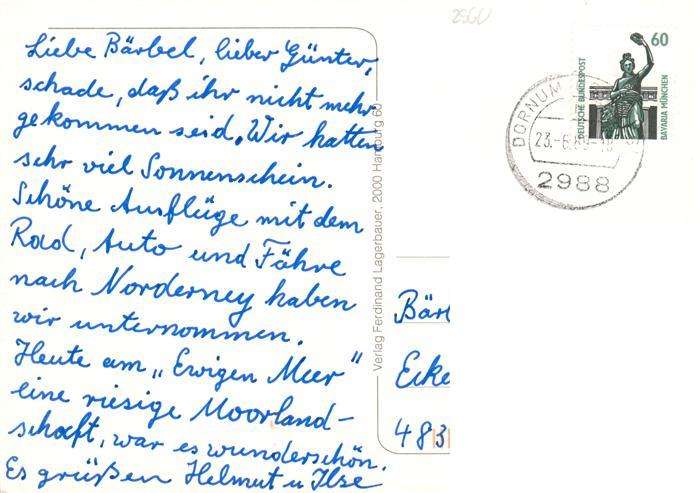 Liebe Bärbel, lieber Günter,
schade, daß ihr nicht mehr
gekommen seid. Wir hatten
sehr viel Sonnenschein.
Schöne Ausflüge mit dem
Rad, Auto und Fähre
nach Norderney haben
wir unternommen.
Heute am „Ewigen Meer"
eine riesige Moorland-
schaft, war es wunderschön.
Es grüßen Helmut u Ilse
Verlag Ferdinand Lagerbauer, 2000 Hamburg 60
2560
60
DEUTSCHE BUNDESPOST
BAVARIA MÜNCHEN
DORNUM
23.-6.89
2988
Bärb
Ecke
483